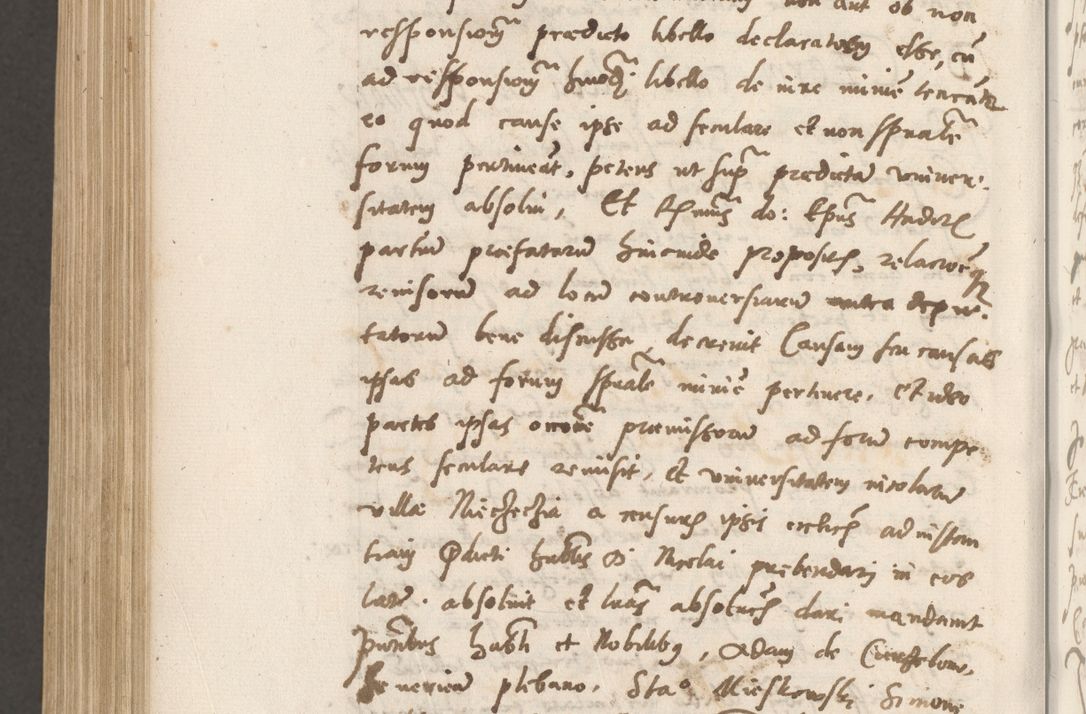 non aut ob non
responsionem praedicto libello declaratum esse, cum
ad responsionem huiusmodi libello de iure minime teneatur
eo quod cause ipse ad seculare et non spirituale
forum pertineant, petens ut supra predictam univer-
sitatem absolvi, Et Rmus do: Epus Auditis
partium praefatarum hincinde propositis, relationeque
revisorum ad locum controversiarum deputa-
tatorum bene discussa, decrevit Causam seu causas
ipsas ad forum spirituale minime pertinere, et ideo
partes ipsas occasione praemissorum ad forum compe-
tens seculare remisit, et universitatem incolarum
villae Niechechia a censuris ipsis ecclesiasticis ad instan
tiam Predicti Nicolai prebendarii in eos
latis absolvit et literas absolutionis dari mandavit
puntibus et Nobilibus, Adam de
plebano, Sta° Mieskowski Simone